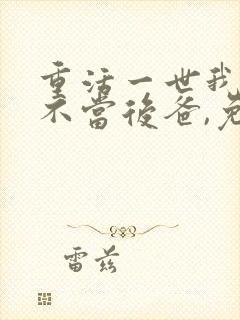 重活一世我
不當後爸,免
雷茲